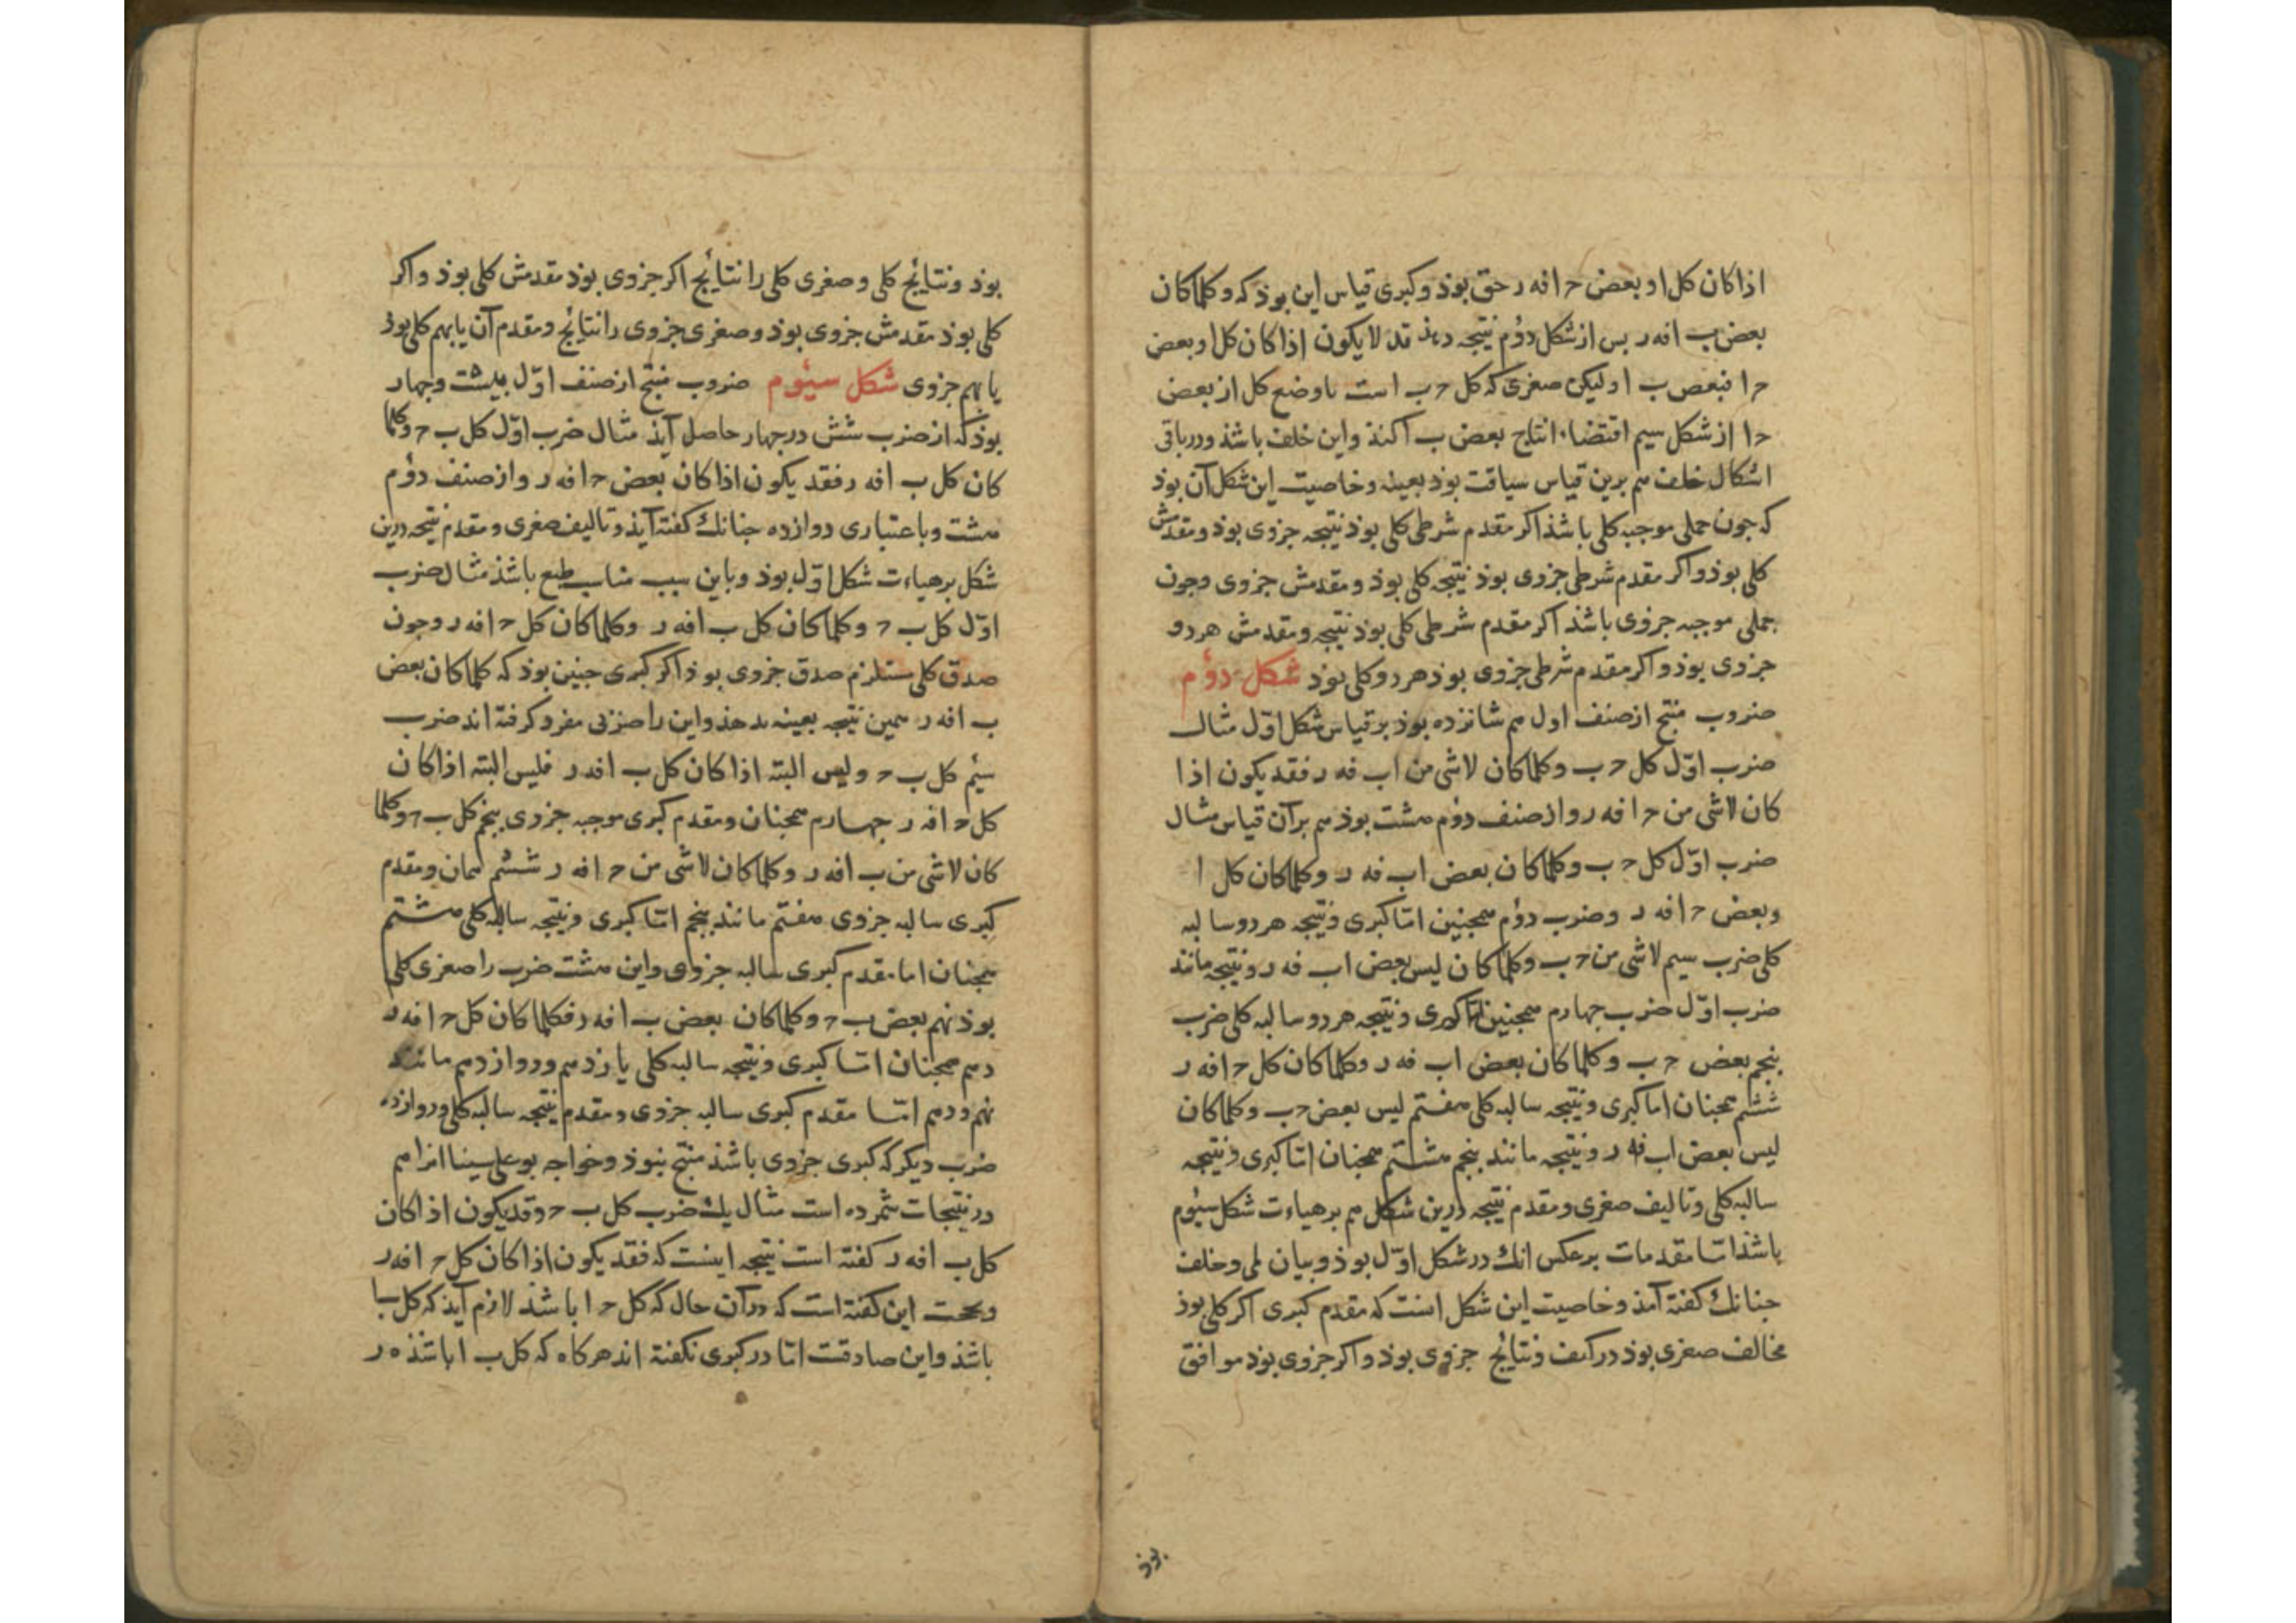 اذا كان كل ا و بعض ح ا فه ر حق بوذ و كبری قیاس این بوذ كه و كلما كان
بعض ب ا فه ر بس از شكل دؤم نتیجه دهذ قد لا یكون اذا كان كل ا و بعض
ح ا فبعض ب ا و لیكن صغری كه كل ح ب است با وضع كل از بعض
ح ا از شكل سیم اقتضاء انتاج بعض ب آ كنذ و این خلف باشذ و در باقی
اشكال خلف هم برین قیاس سیاقت بوذ بعینه و خاصیت این شكل آن بوذ
كه جون حملی موجبه كلی باشذ اكر مقدم شرطی كلی بوذ نتیجه جزوی بوذ و مقدمش
كلی بوذ و اكر مقدم شرطی جزوی بوذ نتیجه كلی بوذ و مقدمش جزوی و جون
حملی موجبه جزوی باشذ اكر مقدم شرطی كلی بوذ نتیجه و مقدمش هر دو
جزوی بوذ و اكر مقدم شرطی جزوی بوذ هر دو كلی بوذ شكل دؤم
ضروب منتج از صنف اول هم شانزده بوذ بر قیاس شكل اوّل مثال
ضرب اوّل كل ح ب و كلما كان لاشی من ا ب فه ر فقد یكون اذا
كان لاشی من ح ا فه ر و از صنف دؤم هشت بوذ هم بر آن قیاس مثال
ضرب اوّل كل ح ب و كلما كان بعض ا ب فه ر و كلما كان كل ا
و بعض ح ا فه ر و ضرب دؤم همجنین امّا كبری و نتیجه هر دو سالبه
كلی ضرب سیم لاشی من ح ب و كلما كان لیس بعض ا ب فه ر و نتیجه مانند
ضرب اوّل ضرب جهارم همجنین امّا كبری و نتیجه هر دو سالبه كلی ضرب
بنجم بعض ح ب و كلما كان بعض ا ب فه ر و كلما كان كل ح ا فه ر
ششم همجنان اما كبری و نتیجه سالبه كلی هفتم لیس بعض ح ب و كلما كان
لیس بعض ا ب فه ر و نتیجه مانند بنجم هشتم همجنان امّا كبری و نتیجه
سالبه كلی و تالیف صغری و مقدم نتیجه درین شكل هم بر هیاءت شكل سیؤم
باشذ امّا مقدمات بر عكس انك در شكل اوّل بوذ و بیان لمی و خلف
جنانك كفته آمذ و خاصیت این شكل انست كه مقدم كبری اكر كلی بوذ
مخالف صغری بوذ در كیف و نتایٔج جزوی بوذ و اكر جزوی بوذ موافق
بوذ
بوذ و نتایٔج كلی و صغری كلی را نتایٔج اكر جزوی بوذ مقدمش كلی بوذ و اكر
كلی بوذ مقدمش جزوی بوذ و صغری جزوی را نتایٔج و مقدم آن یا بهم كلی بوذ
یا بهم جزوی شكل سیؤم ضروب منتج از صنف اوّل بیشت و جهار
بوذ كه از ضرب شش در جهار حاصل آیذ مثال ضرب اوّل كل ب ح و كلما
كان كل ب ا فه ر فقد یكون اذا كان بعض ح ا فه ر و از صنف دؤم
هشت و باعتباری دوازده جنانك كفته آیذ و تالیف صغری و مقدم نتیجه درین
شكل بر هیاءت شكل اوّل بوذ و باین سبب مناسب طبع باشذ مثال ضرب
اوّل كل ب ح و كلما كان كل ب ا فه ر و كلما كان كل ح ا فه ر و جون
صدق كلی مستلزم صدق جزوی بوذ اكر كبری جنین بوذ كه كلما كان بعض
ب ا فه ر همین نتیجه بعینه بدهذ و این را ضربی مفرد كرفته اند ضرب
سیٔم كل ب ح و لیس البته اذا كان كل ب ا فه ر فلیس البته اذا كان
كل ح ا فه ر جهارم همجنان و مقدم كبری موجبه جزوی بنجم كل ب ح و كلما
كان لاشی من ب ا فه ر و كلما كان لاشی من ح ا فه ر ششٔم همان و مقدم
كبری سالبه جزوی هفتم مانند بنجم امّا كبری و نتیجه سالبه كلی هشتم
همجنان اما مقدم كبری سالبه جزوی و این هشت ضرب را صغری كلی
بوذ نهم بعض ب ح و كلما كان بعض ب ا فه ر فكلما كان كل ح ا فه ر
دهم همجنان امّا كبری و نتیجه سالبه كلی یازدهم و دوازدهم مانند
نهم و دهم امّا مقدم كبری سالبه جزوی و مقدم نتیجه سالبه كلی و دوازده
ضرب دیكر كه كبری جزوی باشذ منتج نبوذ و خواجه بو علی سینا انرا هم
در نتیجات شمرده است مثال یك ضرب كل ب ح و قد یكون اذا كان
كل ب ا فه ر كفته است نتیجه اینست كه فقد یكون اذا كان كل ح ا فه ر
و حجت این كفته است كه در آن حال كه كل ح ا باشذ لازم آیذ كه كل ب ا
باشذ و این صادقست امّا در كبری نكفته اند هر كاه كه كل ب ا باشذ ه ر